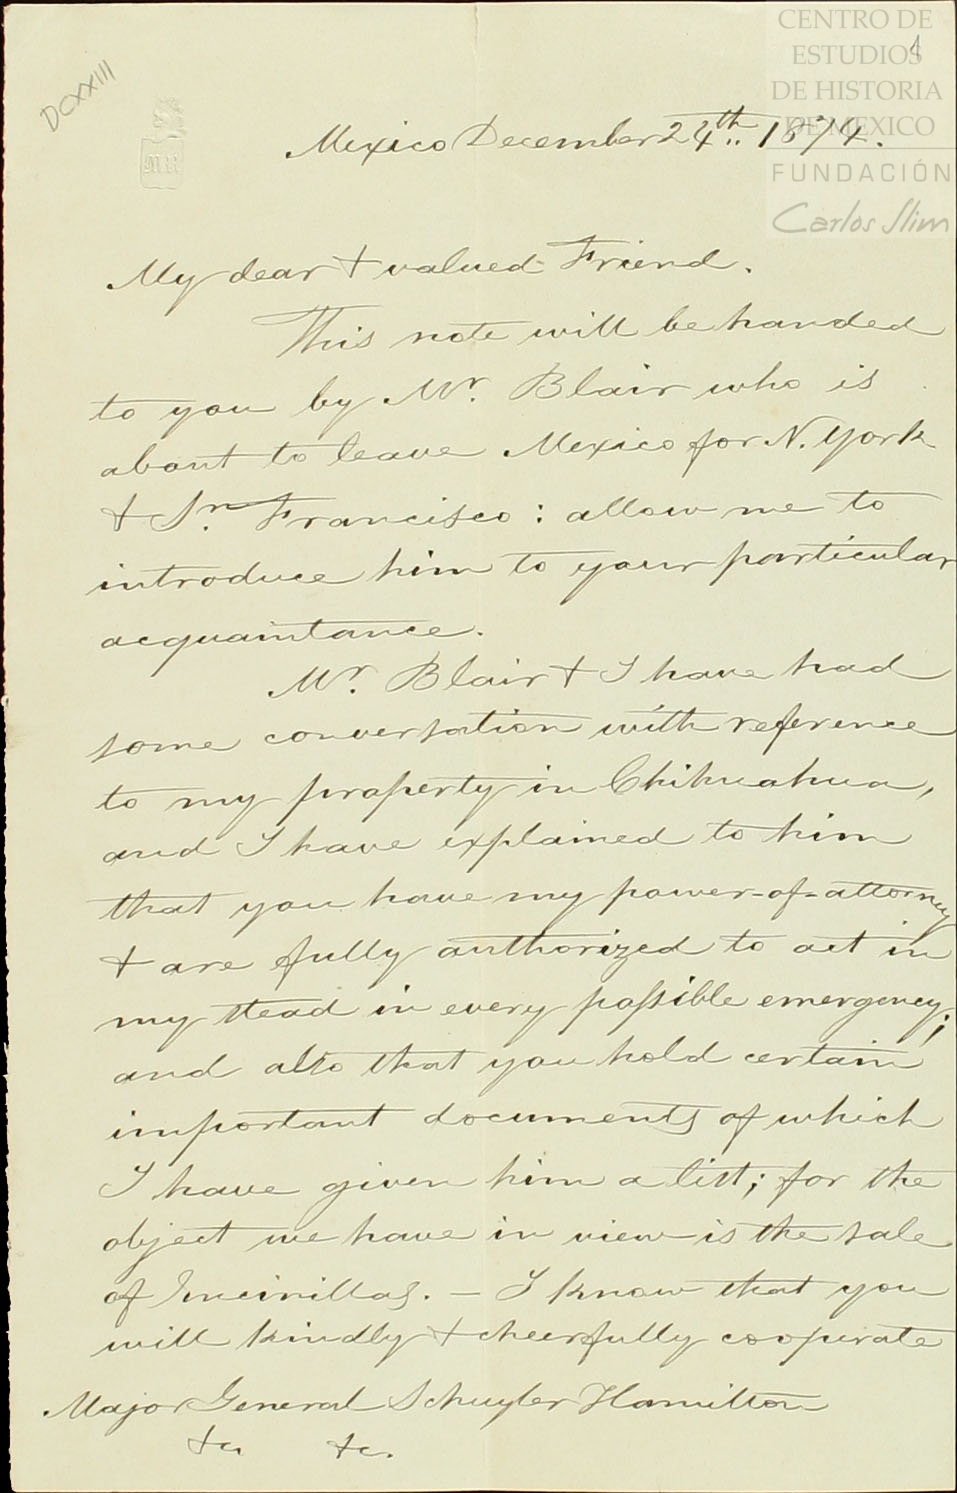 DCXXIII
1
CENTRO DE
ESTUDIOS
DE HISTORIA
DE MEXICO
FUNDACIÓN
Carlos Slim
MR
Mexico December 24th.. 1874.
My dear + valued Friend.
This note will be handed
to you by Mr. Blair who is
about to leave Mexico for N. York
+ Sn. Francisco: allow me to
introduce him to your particular
acquaintance.
Mr. Blair + I have had
some conversation with reference
to my property in Chihuahua,
and I have explained to him
that you have my power-of-attorney
+ are fully authorized to act in
my stead in every possible emergency;
and also that you hold certain
important documents of which
I have given him a list; for the
object we have in view is the sale
of Encinillas. - I know that you
will kindly + cheerfully cooperate
Major General Schuyler Hamilton
+c. +c.